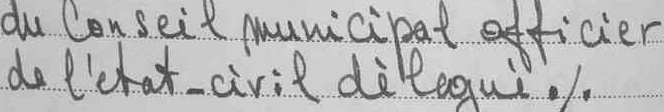 du Conseil municipal officier
de l'etat-civil dèlegué./.